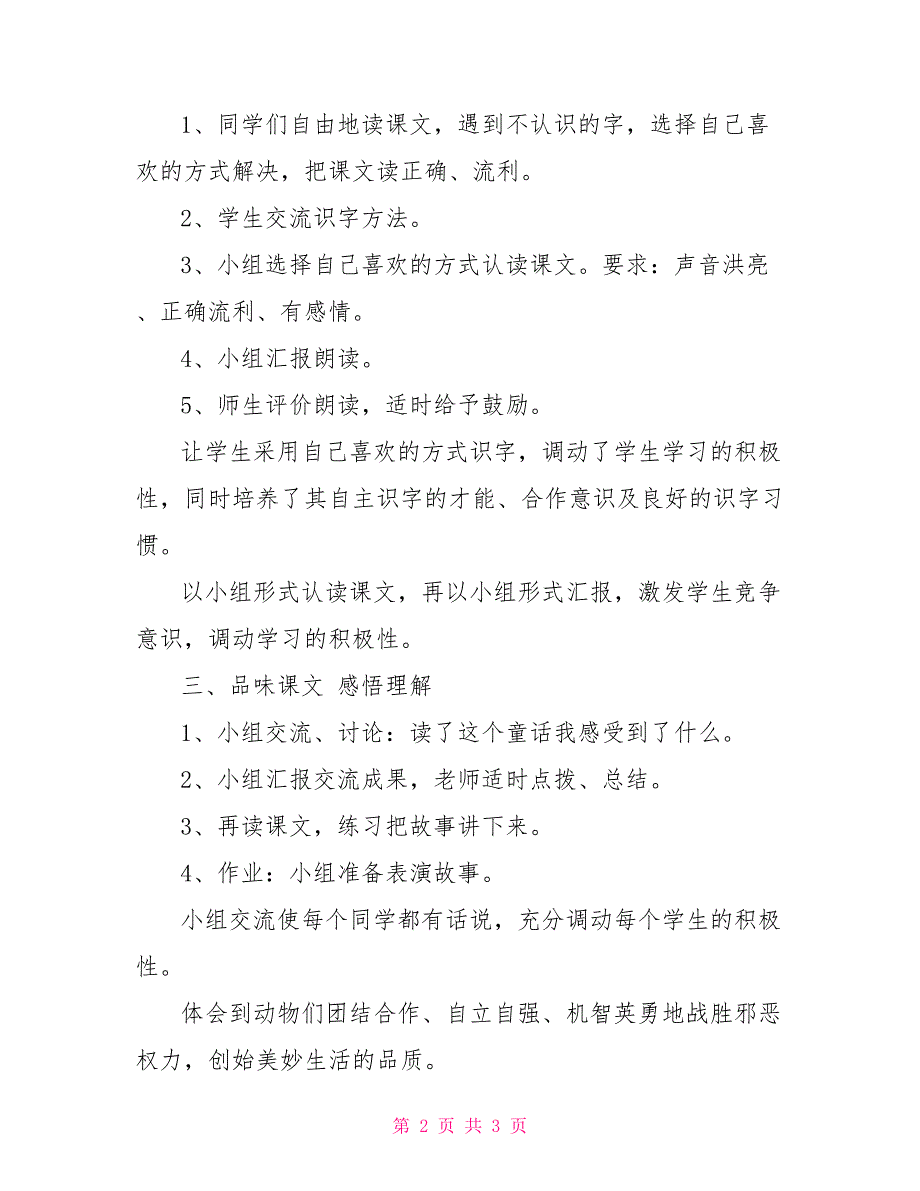 1、同学们自由地读课文，遇到不认识的字，选择自己喜
欢的方式解决，把课文读正确、流利。
2、学生交流识字方法。
3、小组选择自己喜欢的方式认读课文。要求：声音洪亮
、正确流利、有感情。
4、小组汇报朗读。
5、师生评价朗读，适时给予鼓励。
让学生采用自己喜欢的方式识字，调动了学生学习的积极
性，同时培养了其自主识字的才能、合作意识及良好的识字习
惯。
以小组形式认读课文，再以小组形式汇报，激发学生竞争
意识，调动学习的积极性。
三、品味课文 感悟理解
1、小组交流、讨论：读了这个童话我感受到了什么。
2、小组汇报交流成果，老师适时点拨、总结。
3、再读课文，练习把故事讲下来。
4、作业：小组准备表演故事。
小组交流使每个同学都有话说，充分调动每个学生的积极
性。
体会到动物们团结合作、自立自强、机智英勇地战胜邪恶
权力，创始美妙生活的品质。
第 2 页 共 3 页